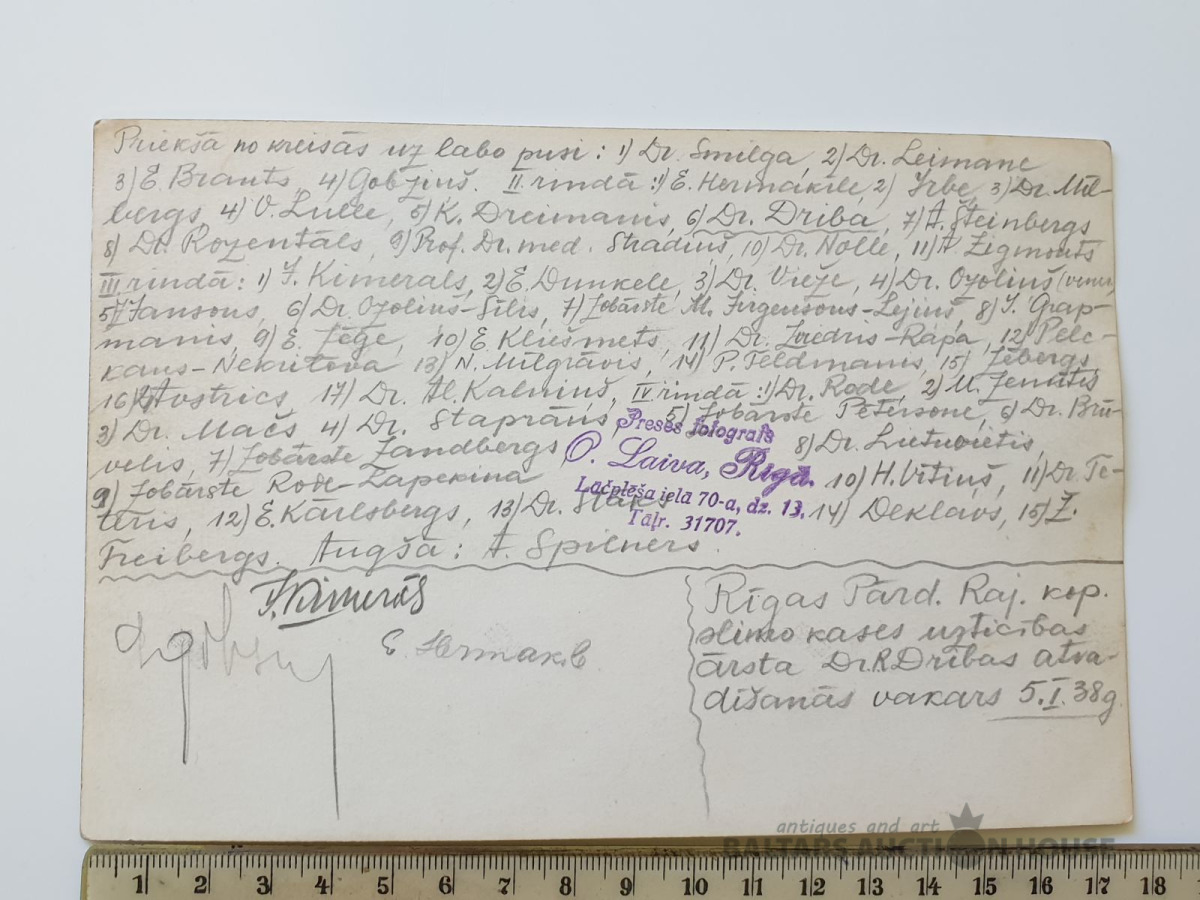 Priekšā no kreisās uz labo pusi: 1) Dr. Smilga, 2) Dr. Leimane
3) E. Brants, 4) Gobziņš. II. rindā: 1) E. Hermākile, 2) Irbe, 3) Dr. Mīl-
bergs, 4) O. Lulle, 5) K. Dreimanis, 6) Dr. Drība, 7) A. Šteinbergs
8) Dr. Rozentāls, 9) Prof. Dr. med. Stradiņš, 10) Dr. Nolle, 11) A. Zigmonts
III rindā: 1) J. Kimerals, 2) E. Dunkele, 3) Dr. Vieže, 4) Dr. Ozoliņš (vener.
5) Jansons, 6) Dr. Ozoliņš-Sīlis, 7) Zobārste M. Jirgensons-Lejiņš, 8) J. Grap-
manis, 9) E. Zēģe, 10) E. Kliešmets, 11) Dr. Zariņš-Rapa, 12) Pelc-
kaus-Nekritova 13) N. Mīlgrāvis, 14) P. Feldmanis, 15) Zēbergs,
16) Avotrics, 17) Dr. Al. Kalniņš, IV rindā: 1) Dr. Rode, 2) M. Zemītis
3) Dr. Mačs 4) Dr. Staprāns, 5) Zobārste Pētersone, 6) Dr. Brū-
velis, 7) Zobārste Zandbergs 8) Dr. Lietuvietis,
9) Zobārste Rode-Zapekina 10) H. Vītiņš, 11) Dr. Tē-
teris, 12) E. Kārlsbergs, 13) Dr. Staks 14) Deklavs, 15) Ž.
Freibergs. Augšā: A. Spilners.
Preses fotografs
O. Laiva, Rīgā.
Lāčplēša ielā 70-a, dz. 13.
Tālr. 31707.
Rīgas Pārd. Raj. kop.
slimo kases uzticības
ārsta Dr. R. Drības atva-
dīšanās vakars 5.I.38g.
antiques and art
BALTARS AUCTION HOUSE
1 2 3 4 5 6 7 8 9 10 11 12 13 14 15 16 17 18